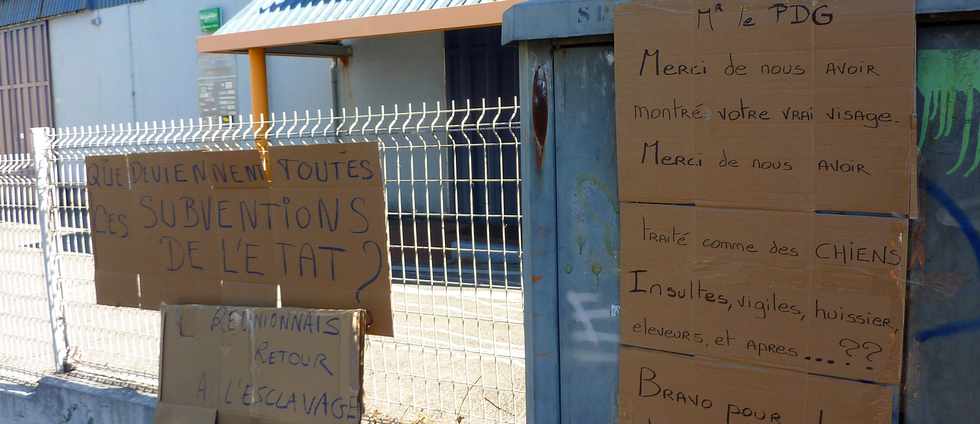 QUE DEVIENNENT TOUTES
LES SUBVENTIONS
DE L'ETAT ?
REUNIONNAIS
RETOUR
A L'ESCLAVAGE
Mr le PDG
Merci de nous AVOIR
montré votre vrai visage.
Merci de nous AVOIR
traité comme des CHIENS
Insultes, vigiles, huissier,
eleveurs, et apres....??
Bravo pour